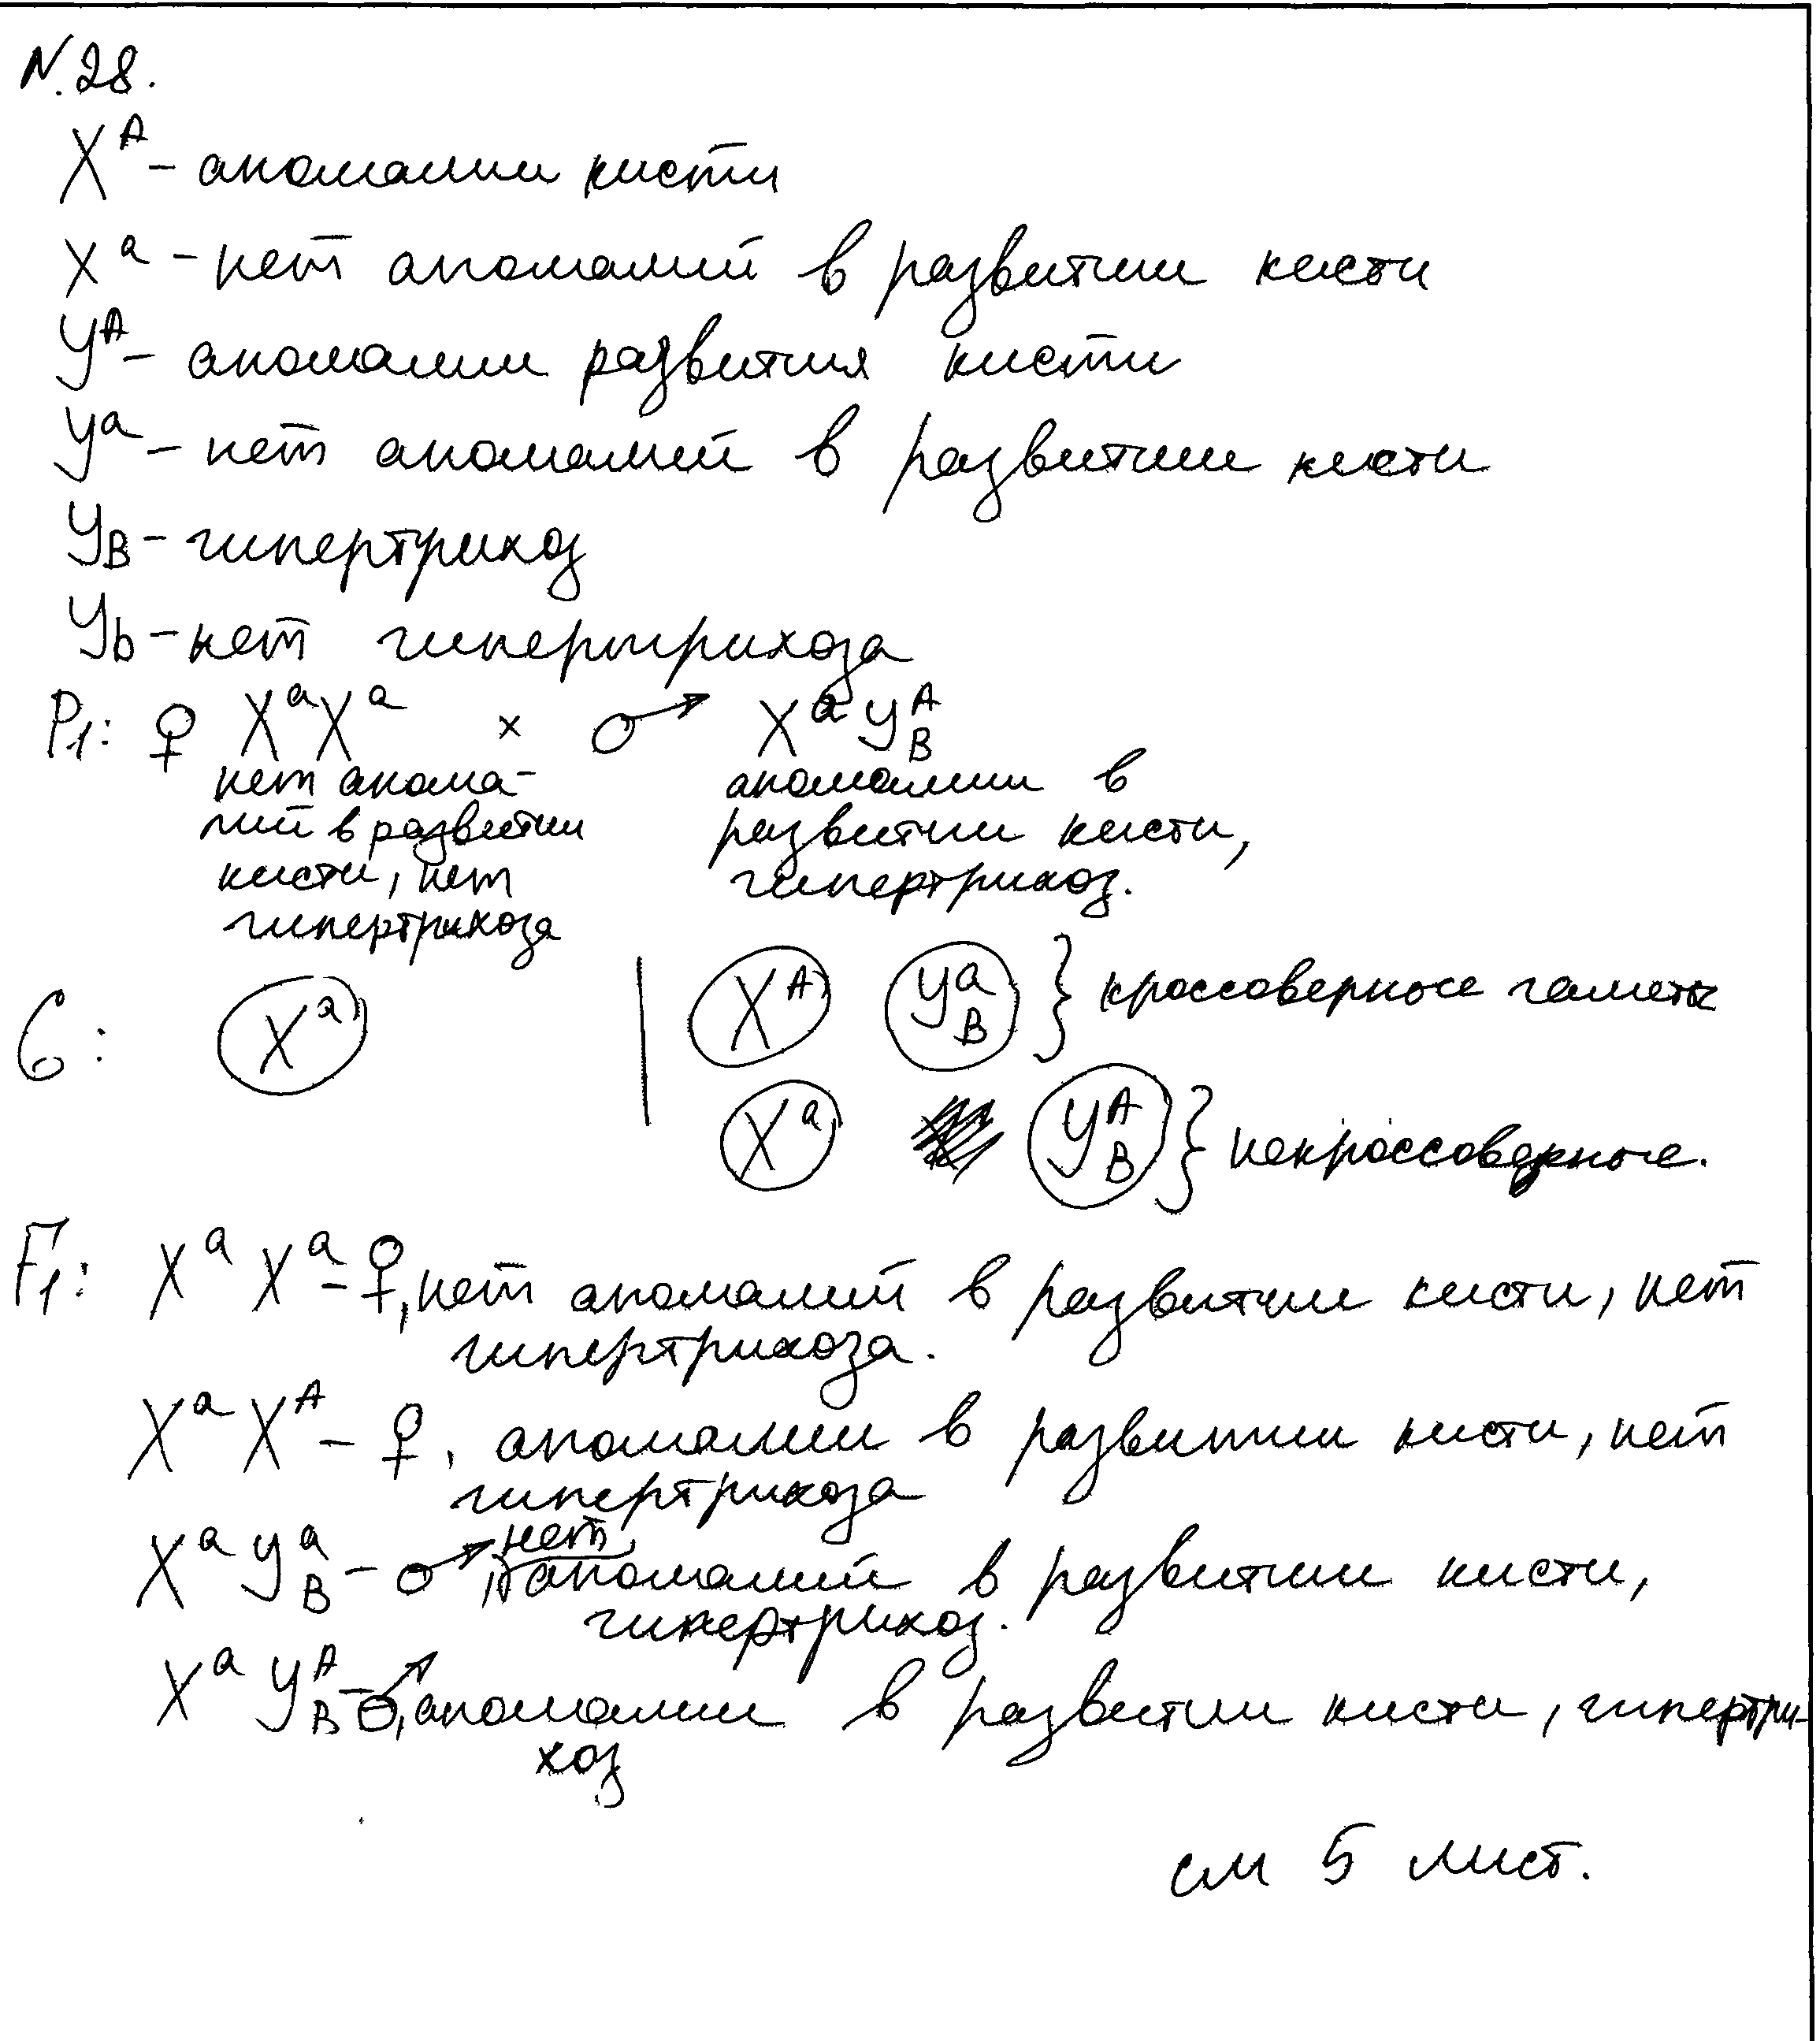 N.28.
X^A – аномалии кисти
X^a – нет аномалий в развитии кисти
Y^A – аномалии развития кисти
Y^a – нет аномалий в развитии кисти
Y_B – гипертрихоз
Y_b – нет гипертрихоза
P1: ♀ X^a X^a × ♂ X^a Y^A_B
нет анома- аномалии в
лий в развитии развитии кисти,
кисти, нет гипертрихоз.
гипертрихоза
G: X^a | X^A Y^a_B } кроссоверные гаметы
X^a Y^A_B } некроссоверные.
F1: X^a X^a – ♀, нет аномалий в развитии кисти, нет
гипертрихоза.
X^a X^A – ♀, аномалии в развитии кисти, нет
гипертрихоза
X^a Y^a_B – ♂, нет аномалий в развитии кисти,
гипертрихоз.
X^a Y^A_B – ♂, аномалии в развитии кисти, гипертри-
хоз
см 5 лист.